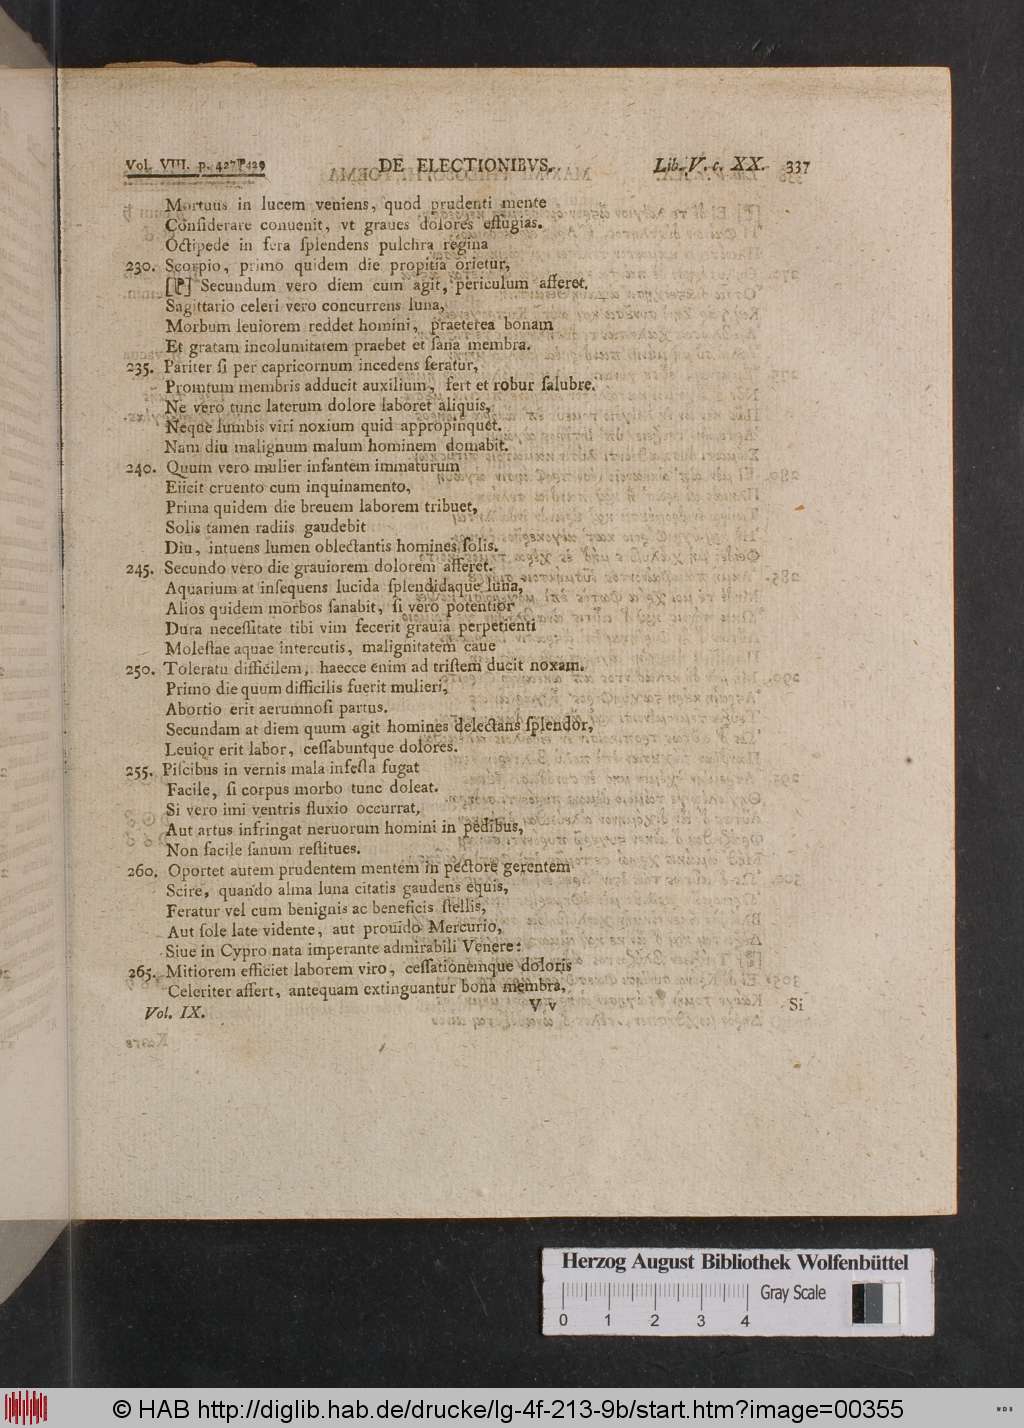 Vol. VIII. p. 427 429 DE ELECTIONIBVS. Lib. V. c. XX. 337
Mortuus in lucem veniens, quod prudenti mente
Conſiderare conuenit, vt graues dolores effugias.
Octipede in fera ſplendens pulchra regina
230. Scorpio, primo quidem die propitia orietur,
[P] Secundum vero diem cum agit, periculum afferet.
Sagittario celeri vero concurrens luna,
Morbum leuiorem reddet homini, praeterea bonam
Et gratam incolumitatem praebet et ſana membra.
235. Pariter ſi per capricornum incedens feratur,
Promtum membris adducit auxilium, fert et robur ſalubre.
Ne vero tunc laterum dolore laboret aliquis,
Neque lumbis viri noxium quid appropinquet.
Nam diu malignum malum hominem domabit.
240. Quum vero mulier infantem immaturum
Eiicit cruento cum inquinamento,
Prima quidem die breuem laborem tribuet,
Solis tamen radiis gaudebit
Diu, intuens lumen oblectantis homines ſolis.
245. Secundo vero die grauiorem dolorem afferet.
Aquarium at inſequens lucida ſplendidaque luna,
Alios quidem morbos ſanabit, ſi vero potentior
Dura neceſſitate tibi vim fecerit grauia perpetienti
Moleſtae aquae intercutis, malignitatem caue
250. Toleratu difficilem, haecce enim ad triſtem ducit noxam.
Primo die quum difficilis fuerit mulieri,
Abortio erit aerumnoſi partus.
Secundam at diem quum agit homines delectans ſplendor,
Leuior erit labor, ceſſabuntque dolores.
255. Piſcibus in vernis mala infeſta fugat
Facile, ſi corpus morbo tunc doleat.
Si vero imi ventris fluxio occurrat,
Aut artus infringat neruorum homini in pedibus,
Non facile ſanum reſtitues.
260. Oportet autem prudentem mentem in pectore gerentem
Scire, quando alma luna citatis gaudens equis,
Feratur vel cum benignis ac beneficis ſtellis,
Aut ſole late vidente, aut prouido Mercurio,
Siue in Cypro nata imperante admirabili Venere:
265. Mitiorem efficiet laborem viro, ceſſationemque doloris
Celeriter affert, antequam extinguantur bona membra,
Vol. IX. V v Si
Herzog August Bibliothek Wolfenbüttel
Gray Scale
0 1 2 3 4
© HAB http://diglib.hab.de/drucke/lg-4f-213-9b/start.htm?image=00355